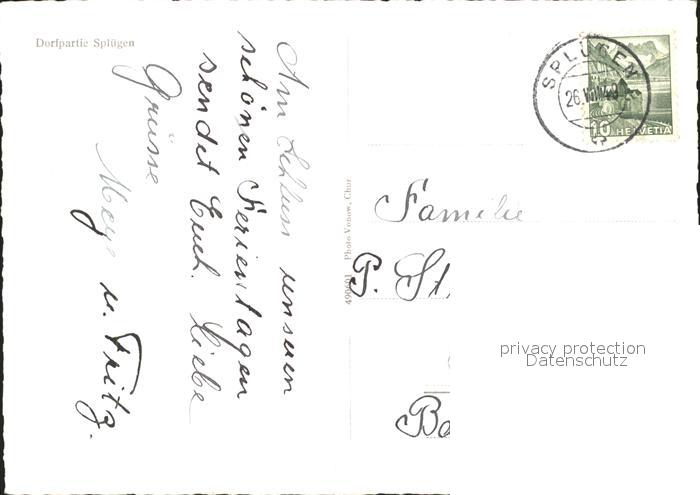 Dorfpartie Splügen
Am Schluss unseren
schönen Ferientagen
sendet Euch. Liebe
Grüsse
u. Fritz.
490601 Photo Vonow, Chur
SPLÜGEN
26.
10 HELVETIA
Familie
P. St.
privacy protection
Datenschutz
Ba